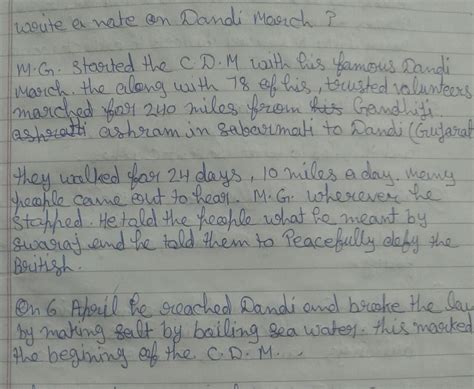 write a note on Dandi March ?
M.G. Started the C.D.M with his famous Dandi
March. the along with 78 of his, trusted volunteers
marched for 240 miles from his Gandhiji
ashram in sabarmati to Dandi (Gujarat
they walked for 24 days, 10 miles a day. many
people came out to hear. M.G. wherever he
stopped. He told the people what he meant by
swaraj and he told them to Peacefully defy the
British.
On 6 April he reached Dandi and broke the law
by making salt by boiling sea water. this marked
the begining of the C.D.M...